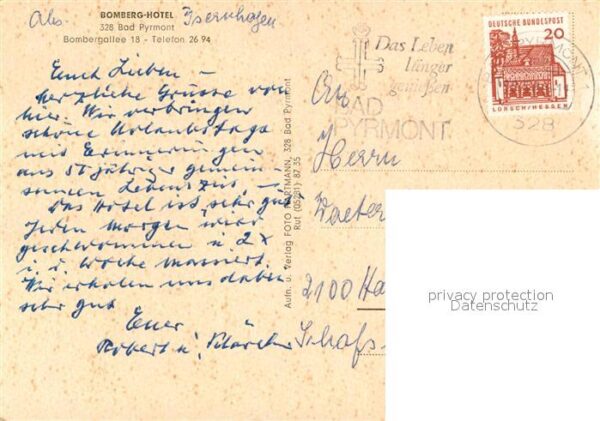 Abs. Isernhagen
BOMBERG-HOTEL
328 Bad Pyrmont
Bombergallee 18 - Telefon 26 94
Euch Lieben –
herzliche Grüsse von
hier. Wir verbringen
schöne Urlaubstage
mit Erinnerungen
aus 50 jähriger gemein-
samen Lebenszeit. –
Das Hotel ist sehr gut
Jeden Morgen wird
geschwommen u. 2 x
i. d. Woche massiert.
Wir erholen uns dabei
sehr gut
Euer
Robert u.
Aufn. u. Verlag FOTO HARTMANN, 328 Bad Pyrmont
Ruf (05281) 87 35
Das Leben
länger
genießen
BAD
PYRMONT
BAD PYRMONT 1
328
DEUTSCHE BUNDESPOST
20
LORSCH/HESSEN
An
Herrn
2100 Ha
privacy protection
Datenschutz